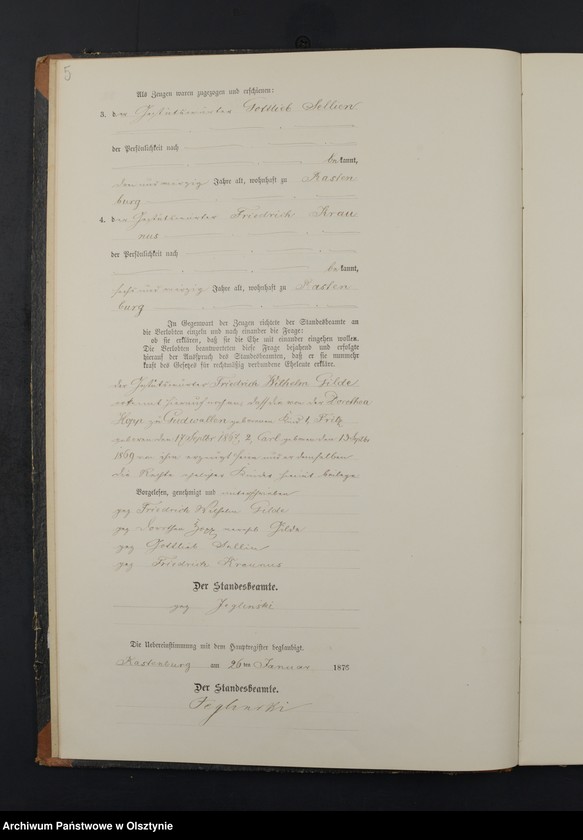 5
Als Zeugen waren zugezogen und erschienen:
3. der Gestütwärter Gottlieb Sellien
der Persönlichkeit nach
bekannt,
Jahre alt, wohnhaft zu Rasten
burg
4. der Gestütwärter Friedrich Krau
nus
der Persönlichkeit nach
bekannt,
Jahre alt, wohnhaft zu Rasten
burg
In Gegenwart der Zeugen richtete der Standesbeamte an
die Verlobten einzeln und nach einander die Frage:
ob sie erklären, daß sie die Ehe mit einander eingehen wollen.
Die Verlobten beantworteten diese Frage bejahend und erfolgte
hierauf der Ausspruch des Standesbeamten, daß er sie nunmehr
kraft des Gesetzes für rechtmäßig verbundene Eheleute erkläre.
der Gestütwärter Friedrich Wilhelm Gilde
daß die von der Dorothea
Hopp zu Gudwallen geborenen 1, Fritz
geboren den 17 Septbr 2, Carl geboren den 13 Septbr
1869 von ihm erzeugt seien und er denselben
die Rechte Kindes hiermit beilege
Vorgelesen, genehmigt und unterschrieben
gez Friedrich Wilhelm Gilde
gez Dorothea Hopp Gilde
gez Gottlieb Sellien
gez Friedrich Kraunus
Der Standesbeamte.
gez Jeglinski
Die Uebereinstimmung mit dem Hauptregister beglaubigt.
Rastenburg am 26ten Januar 1876
Der Standesbeamte.
Jeglinski
Archiwum Państwowe w Olsztynie